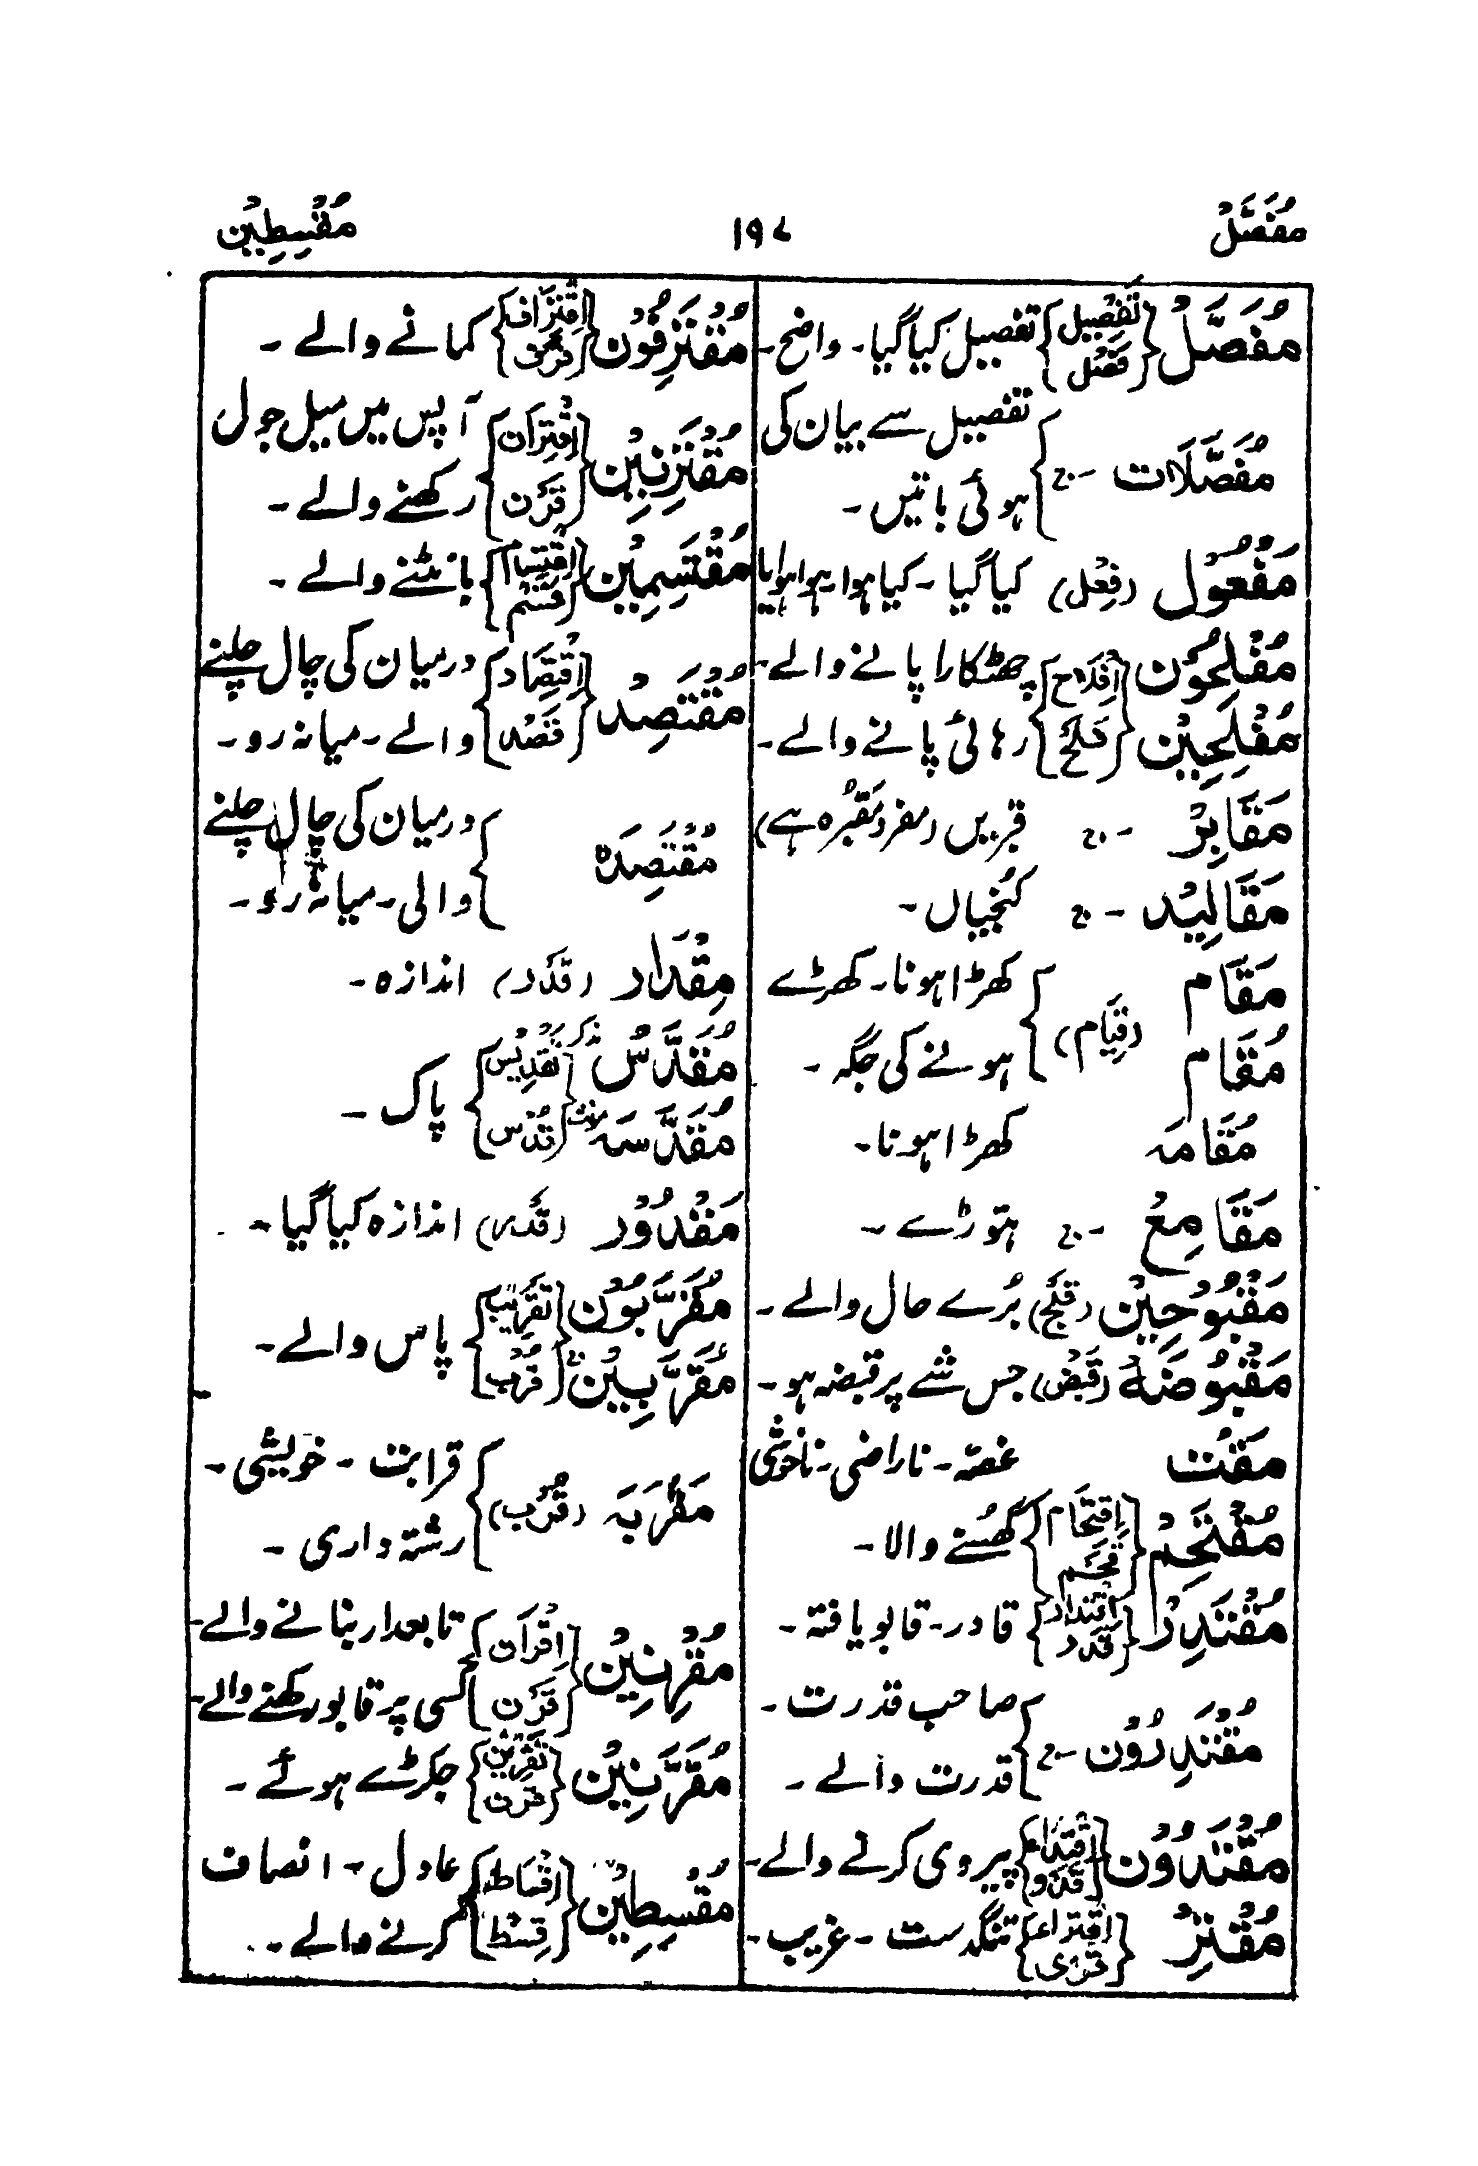 مُفَصَّلْ
۱۹۷
مُقْسِطِیْن
مُفَصَّلْ {تَفْصِیل فَصْل} تفصیل کیا گیا۔ واضح۔
مُفَصَّلَات ۔ ج {تفصیل سے بیان کی
ہوئی باتیں۔
مَفْعُوْل (فِعْل) کیا گیا ۔ کیا ہوا۔ ہوا ہوایا
مُفْلِحُوْن {اِفْلَاح چھٹکارا پانے والے۔
مُفْلِحِیْن فَلَحْ} رہائی پانے والے۔
مَقَابِرْ ۔ ج قبریں (مفرد مَقْبُرہ ہے)
مَقَالِیْد ۔ ج کنجیاں۔
مَقَام (قِیَام) {کھڑا ہونا۔ کھڑے
مُقَام ہونے کی جگہ ۔
مُقَامَہ کھڑا ہونا۔
مَقَامِعْ ۔ ج ہتوڑے ۔
مَقْبُوْحِیْن (قَبْح) بُرے حال والے ۔
مَقْبُوْضَۃٌ (قَبْض) جس شے پر قبضہ ہو۔
مَقْت غصّہ ۔ ناراضی ۔ ناخوشی
مُقْتَحِمْ {اِقْتِحَام قَحَم} گھسنے والا۔
مُقْتَدِرْ {اِقْتِدَار قَدَر} قادر۔ قابو یافتہ ۔
مُقْتَدِرُوْن ۔ ج {صاحب قدرت ۔
قدرت والے ۔
مُقْتَدُوْن {اِقْتِدَاء قَدْو} پیروی کرنے والے۔
مُقْتِرْ {اِقْتِراء قَرْی} تنگدست ۔ غریب۔
مُقْتَرِفُوْن {اِقْتِرَاف قَرْف} کمانے والے ۔
مُقْتَرِنِیْن {اِقْتِرَان آپس میں میل جول
قَرْن} رکھنے والے ۔
مُقْتَسِمِیْن {اِقْتِسَام قَسْم} بانٹنے والے ۔
مُقْتَصِدْ {اِقْتِصَاد درمیان کی چال چلنے
قَصْد} والے ۔ میانہ رو۔
مُقْتَصِدَہ {درمیان کی چال چلنے
والی ۔ میانہ رو ۔
مِقْدَار (قَدَر) اندازہ ۔
مُقَدَّسْ مذکر {تَقْدِیْس
مُقَدَّسَہ مونث قُدْس} پاک ۔
مَقْدُوْر (قَدَر) اندازہ کیا گیا ۔
مُقَرَّبُوْن {تَقْرِیْب
مُقَرَّبِیْن قُرْب} پاس والے ۔
مَقْرَبَہ (قُرْب) {قرابت ۔ خویشی ۔
رشتہ داری ۔
مُقْرِنِیْن {اِقْرَان تابعدار بنانے والے۔
قَرْن} کسی پر قابو رکھنے والے۔
مُقَرَّنِیْن {تَقْرِیْن قَرْن} جکڑے ہوئے ۔
مُقْسِطِیْن {اِقْسَاط عادل ۔ انصاف
قِسْط} کرنے والے ۔